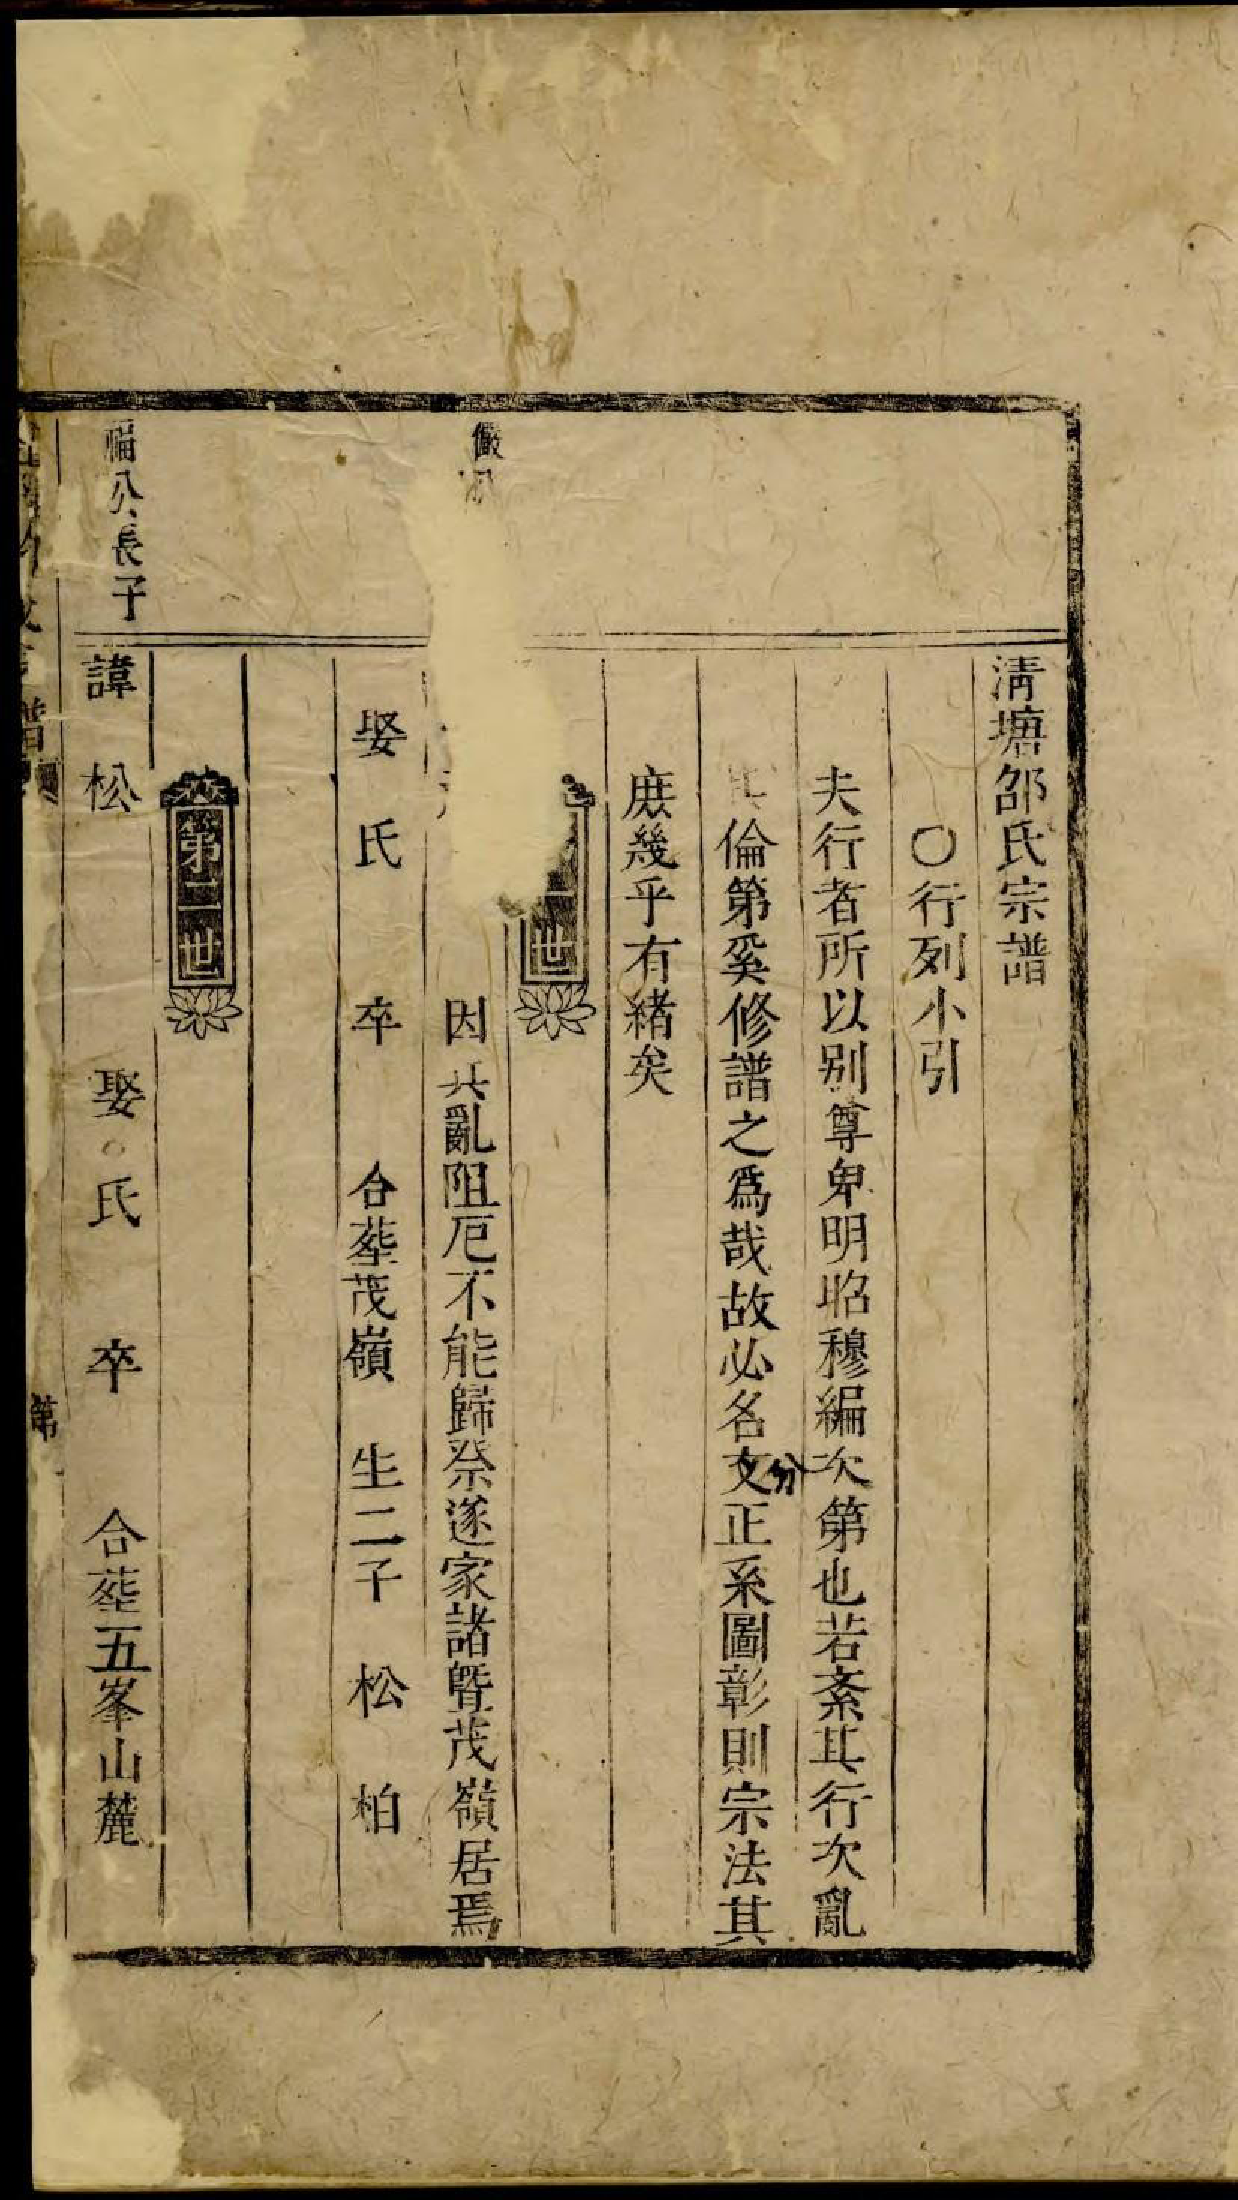 清塘邵氏宗譜
○行列小引
夫行者所以別尊卑明昭穆編次第也若紊其行次亂
其倫第奚修譜之爲哉故必名文分正系圖彰則宗法其
庶幾乎有緒矣
一世
儼公
因兵亂阻厄不能歸祭遂家諸暨茂嶺居焉
娶 氏 卒 合塟茂嶺 生二子 松 柏
第二世
公長子
諱 松 娶 氏 卒 合塟五峯山麓
譜
第